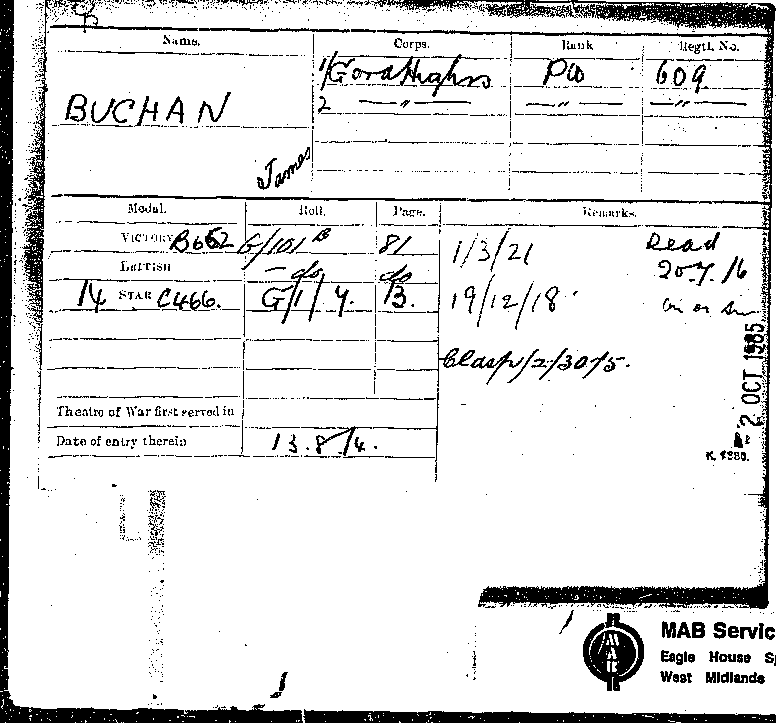 Name. Corps. Rank Regtl. No.
1/Gord Highrs Pte 609.
BUCHAN 2 —〃— —〃— —〃—
James
Medal. Roll. Page. Remarks.
VICTORY B662 G/101 B 81 1/3/21 Dead
BRITISH — do do 20.7.16
14 STAR C466. G/1/4. 13. 19/12/18. on or
Clasp/2/3075.
Theatre of War first served in
Date of entry therein 13.8.14.
2 OCT 1985
K. 1380.
MAB Servic
Eagle House S
West Midlands